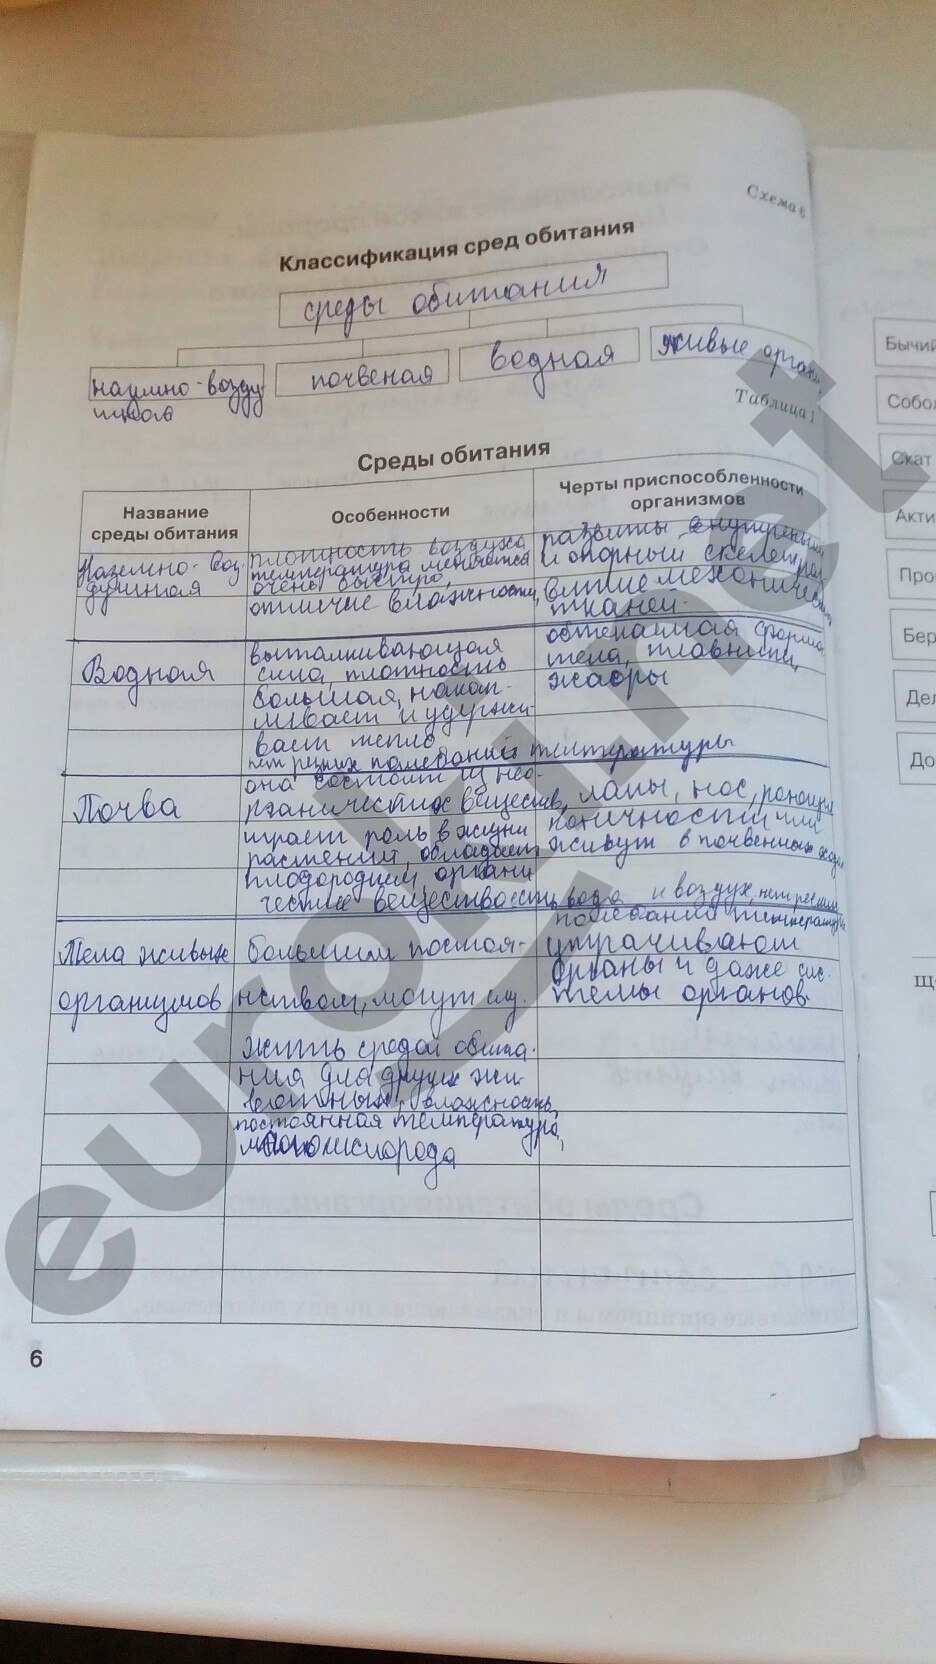 Схема 6
Классификация сред обитания
среды обитания
наземно-возду
шная
почвеная
водная
живые орган
Таблица 1
Среды обитания
Название
среды обитания
Особенности
Черты приспособленности
организмов
Наземно-воз-
душная
плотность воздуха
температура меняется
очень быстро,
отличие влажности,
развиты внутренний
и опорный скелет, раз
витие механических
тканей.
Водная
выталкивающая
сила, плотность
большая, накап-
ливает и удержи-
вает тепло
нет резких колебаний температуры
обтекаемая форма
тела, плавники,
жабры
Почва
она состоит из нео-
рганических веществ,
играет роль в жизни
растений, обладает
плодородием, органи
ческие вещества есть вода и воздух, нет резких
колебаний температуры
лапы, нос, роющие
конечности или
живут в почвенных водах
Тела живых
организмов
большим постоя-
нством, могут слу-
жить средой обита-
ния для других жи-
вотных, влажность,
постоянная температура,
много кислорода
утрачивают
органы и даже сис-
темы органов.
6
Бычий
Собол
Скат
Акти
Про
Бер
Дел
До
щ
euroki.net